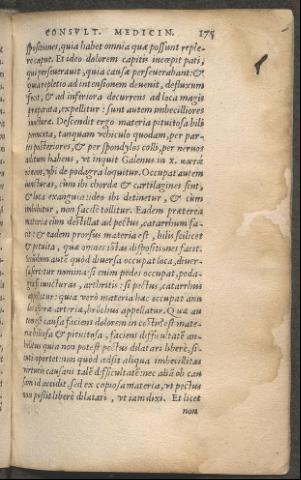 CONSVLT. MEDICIN. 175
spositiones, quia habet omnia quæ possunt reple-
re caput. Et ideo dolorem capitis incœpit pati,
qui perseverauit, quia causæ perseverabant: &
quia repletio ad intensionem deuenit, defluxum
fecit, & ad inferiora decurrens ad loca magis
præparata, expellitur: sunt autem imbecilliores
iuncturæ. Descendit ergo materia pituitosa bili
permixta, tanquam vehiculo quodam, per par-
tes posteriores, & per spondylos colli, per neruos
aditum habens, vt inquit Galenus in x.
vbi de podagra loquitur. Occupat autem
iuncturas, cum ibi chordæ & cartilagines sint,
& loca exanguia: ideo ibi detinetur, & cum
imbibatur, non facile tollitur. Eadem præterea
materia cum destillat ad pectus, catarrhum fa-
cit: & eadem prorsus materia est, bilis scilicet
& pituita, quæ omnes istas dispositiones facit.
autē quòd diuersa occupat loca, diuer-
sa sortitur nomina: si enim pedes occupat, poda-
gra: si iuncturas, arthritis: si pectus, catarrhus
appellatur: quæ verò materia hac occupat
arteria, brōchus appellatur. Quæ au
tem est causa faciens dolorem in est mate-
ria biliosa & pituitosa, faciens difficultatē an-
helitus quia non potest pectus dilatari liberè, si-
cuti oportet: non quòd adsit aliqua imbecillitas
virtutis causans talē difficultatē: nec aliā ob cau
sam id accidit, sed ex copiosa materia, vt pectus
non possit liberè dilatari, vt iam dixi. Et licet
non